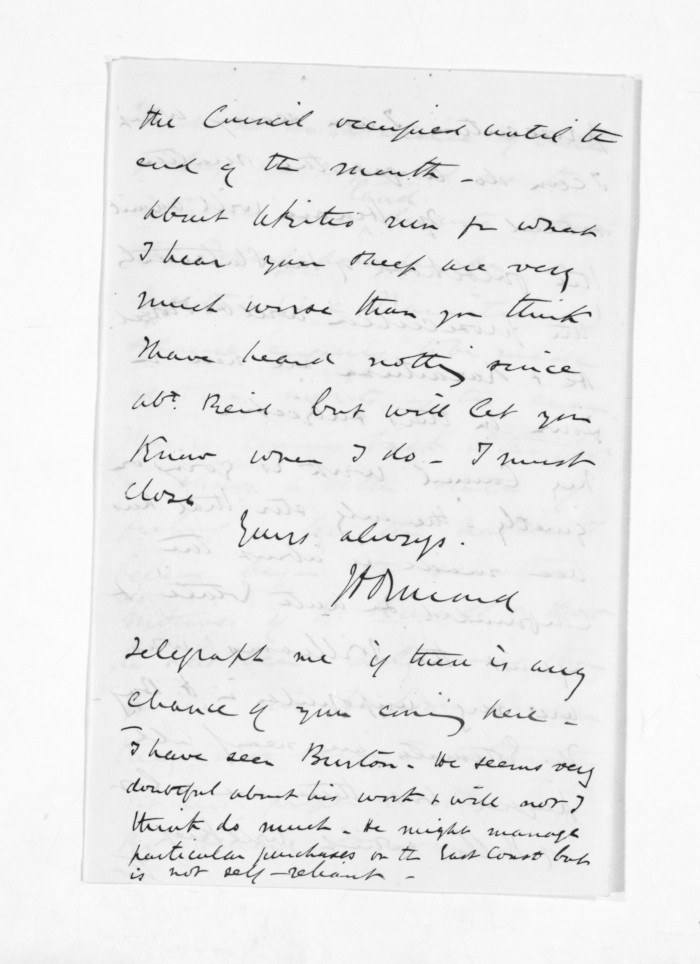 the Council occupied until the
end of the month -
About Akitio run for what
I hear your sheep are very
much worse than you think
I have heard nothing since
abt. Reid but will let you
Know when I do - I must
close
Yours always.
JD Ormond
Telegraph me if there is any
chance of your coming here -
I have seen Burton - He seems very
doubtful about his work & will not I
think do much - He might manage
particular purchases on the East Coast but
is not self-reliant -